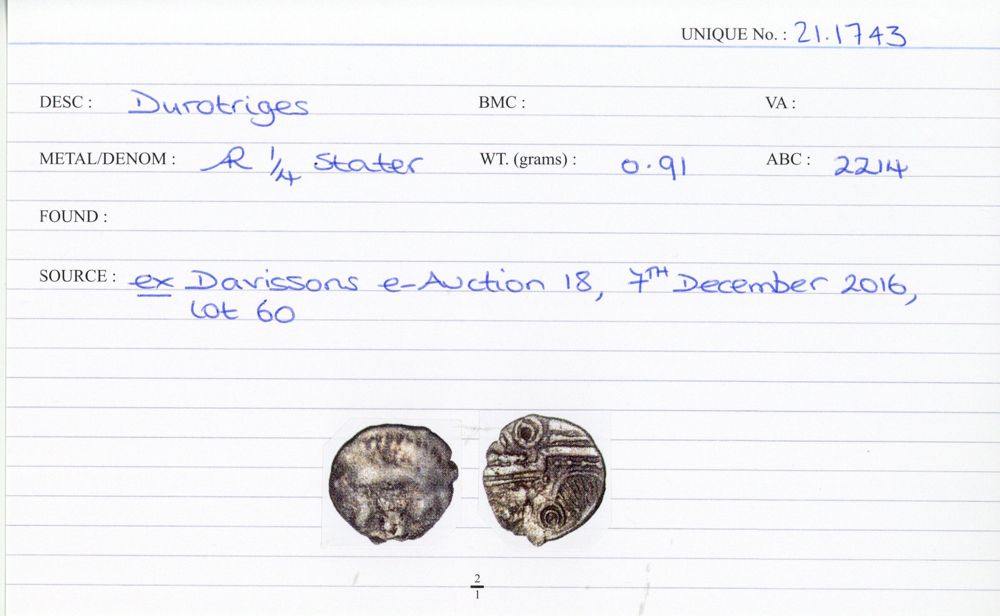 UNIQUE No. : 21.1743
DESC : Durotriges BMC : VA :
METAL/DENOM : AR 1/4 Stater WT. (grams) : 0.91 ABC : 2214
FOUND :
SOURCE : ex Davissons e-Auction 18, 7TH December 2016,
Lot 60
2/1